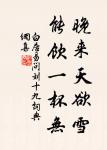 晚来天欲雪
能饮一杯無
白居易问刘十九詞典
網集